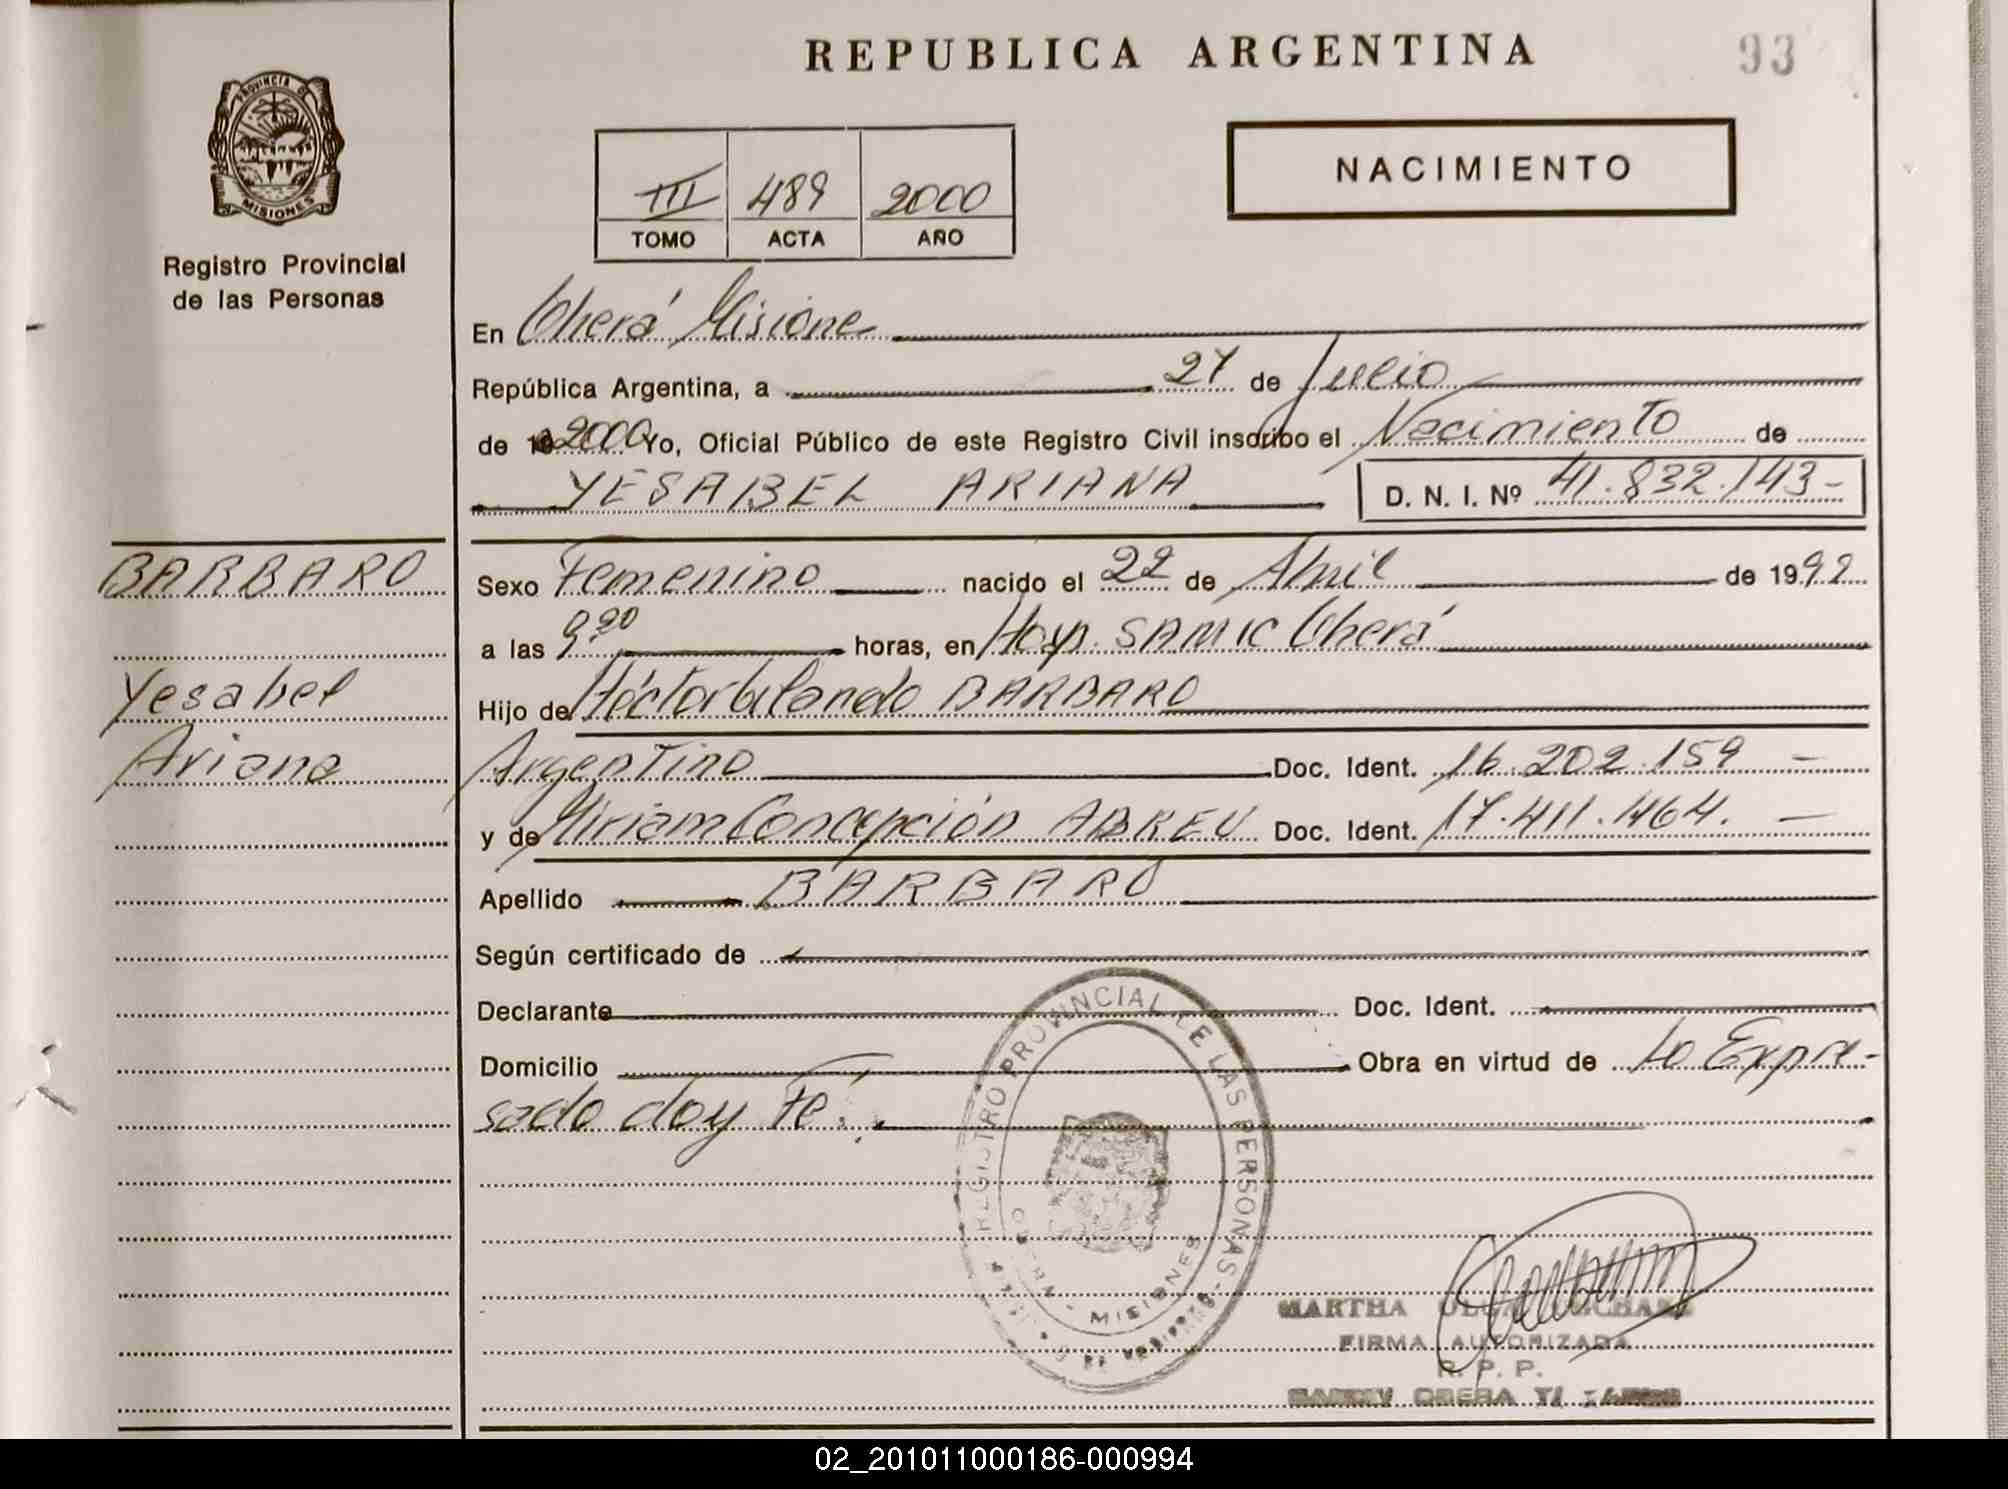 REPUBLICA ARGENTINA
93
PROVINCIA DE
MISIONES
Registro Provincial
de las Personas
NACIMIENTO
III 489 2000
TOMO ACTA AÑO
En Oberá Misiones
República Argentina, a 27 de Julio
de 2000 Yo, Oficial Público de este Registro Civil inscribo el Nacimiento de
YESABEL ARIANA D. N. I. Nº 41.832.143-
BARBARO
Yesabel
Ariana
Sexo Femenino nacido el 22 de Abril de 1992
a las 9,20 horas, en Hosp. SAMIC Oberá
Hijo de Héctor Orlando BARBARO
Argentino Doc. Ident. 16.202.159 -
y de Miriam Concepción ABREU Doc. Ident. 17.411.464. -
Apellido BARBARO
Según certificado de
Declarante Doc. Ident.
Domicilio Obra en virtud de lo Expre-
sado doy Fé.
REGISTRO PROVINCIAL DE LAS PERSONAS
MISIONES
MARTHA
FIRMA AUTORIZADA
R. P. P.
OBERA
02_201011000186-000994